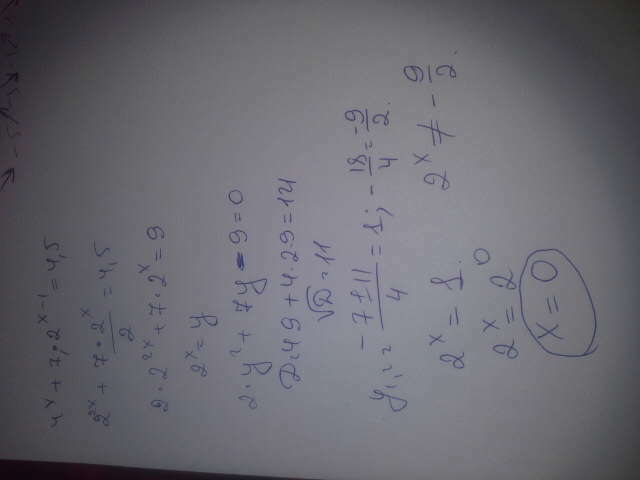 4^x + 7·2^{x-1} = 4,5
2^{2x} + \frac{7·2^x}{2} = 4,5
2·2^{2x} + 7·2^x = 9
2^x = y
2·y^2 + 7y - 9 = 0
D = 49 + 4·2·9 = 121
√D = 11
y_{1,2} = \frac{-7±11}{4} = 1; -\frac{18}{4} = \frac{-9}{2}.
2^x = 1. 2^x ≠ -\frac{9}{2}.
2^x = 2^0
x = 0